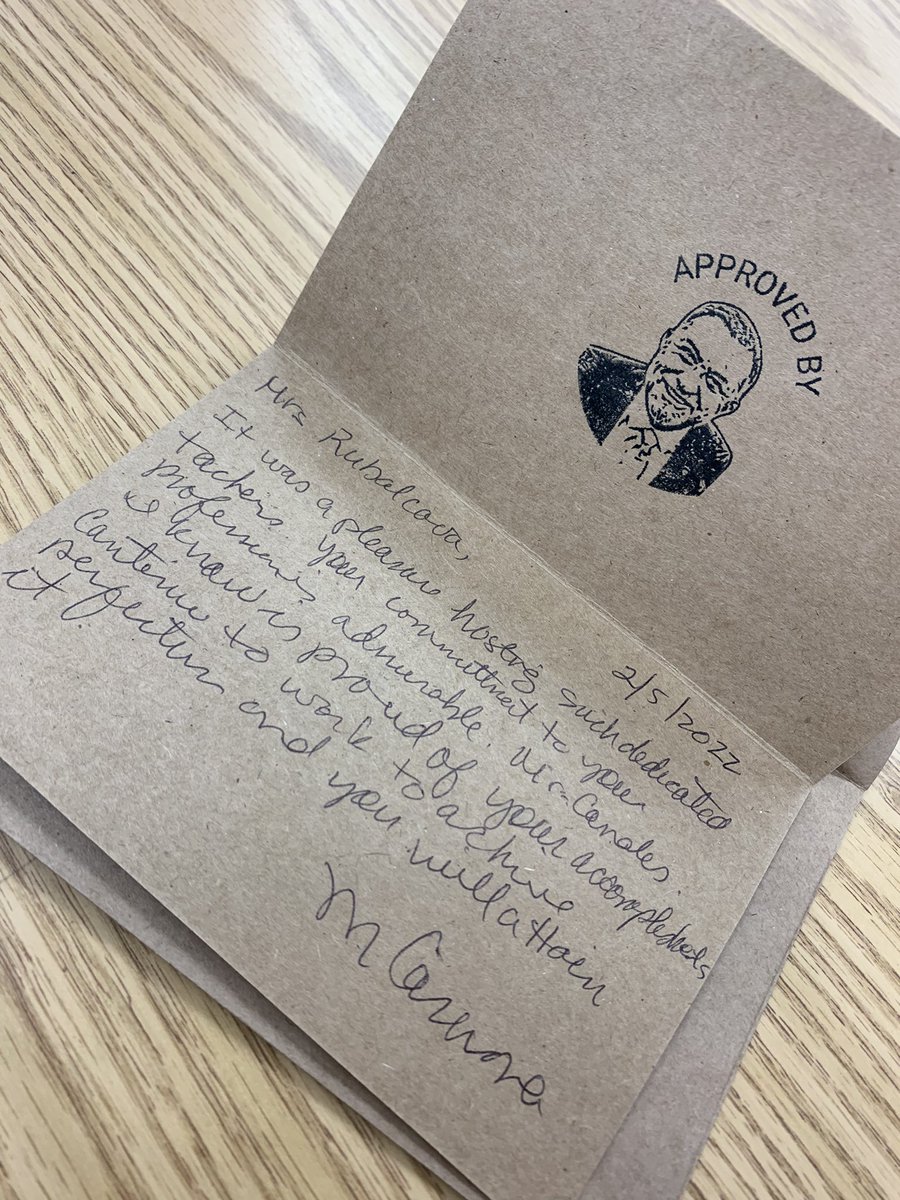 APPROVED BY
2/5/2022
Mrs Rubalcava,
It was a pleasure hosting such dedicated
teachers your committment to your
profession is admirable. Mr. Canales.
I know is proud of your
continue to work to achive
perfection and you will attain
it